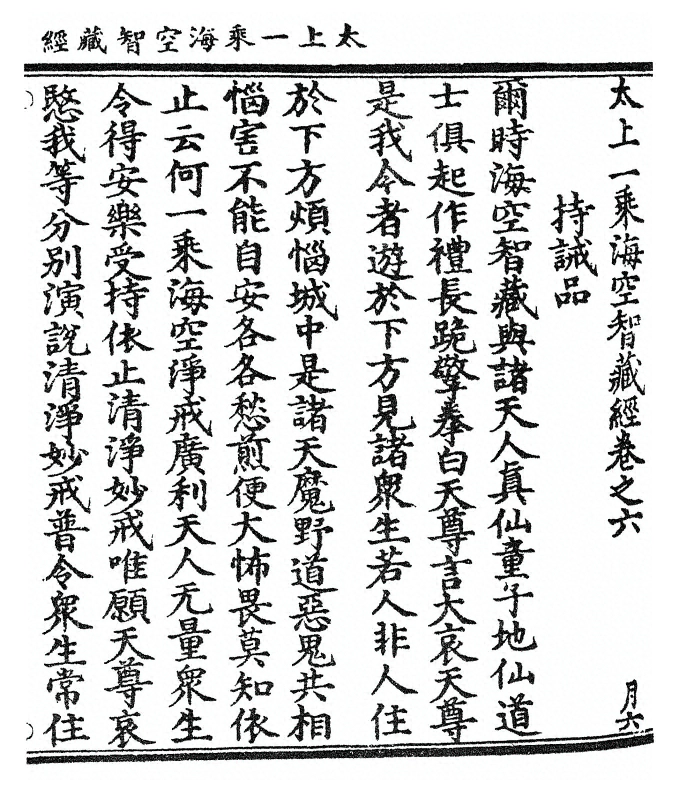 太上一乘海空智藏經
太上一乘海空智藏經卷之六
月六
持誡品
爾時海空智藏與諸天人真仙童子地仙道
士俱起作禮長跪擎拳白天尊言大哀天尊
是我令者遊於下方見諸衆生若人非人住
於下方煩惱城中是諸天魔野道惡鬼共相
惱害不能自安各各愁煎便大怖畏莫知依
止云何一乘海空淨戒廣利天人无量衆生
令得安樂受持依止清淨妙戒唯願天尊哀
愍我等分别演說清淨妙戒普令衆生常住